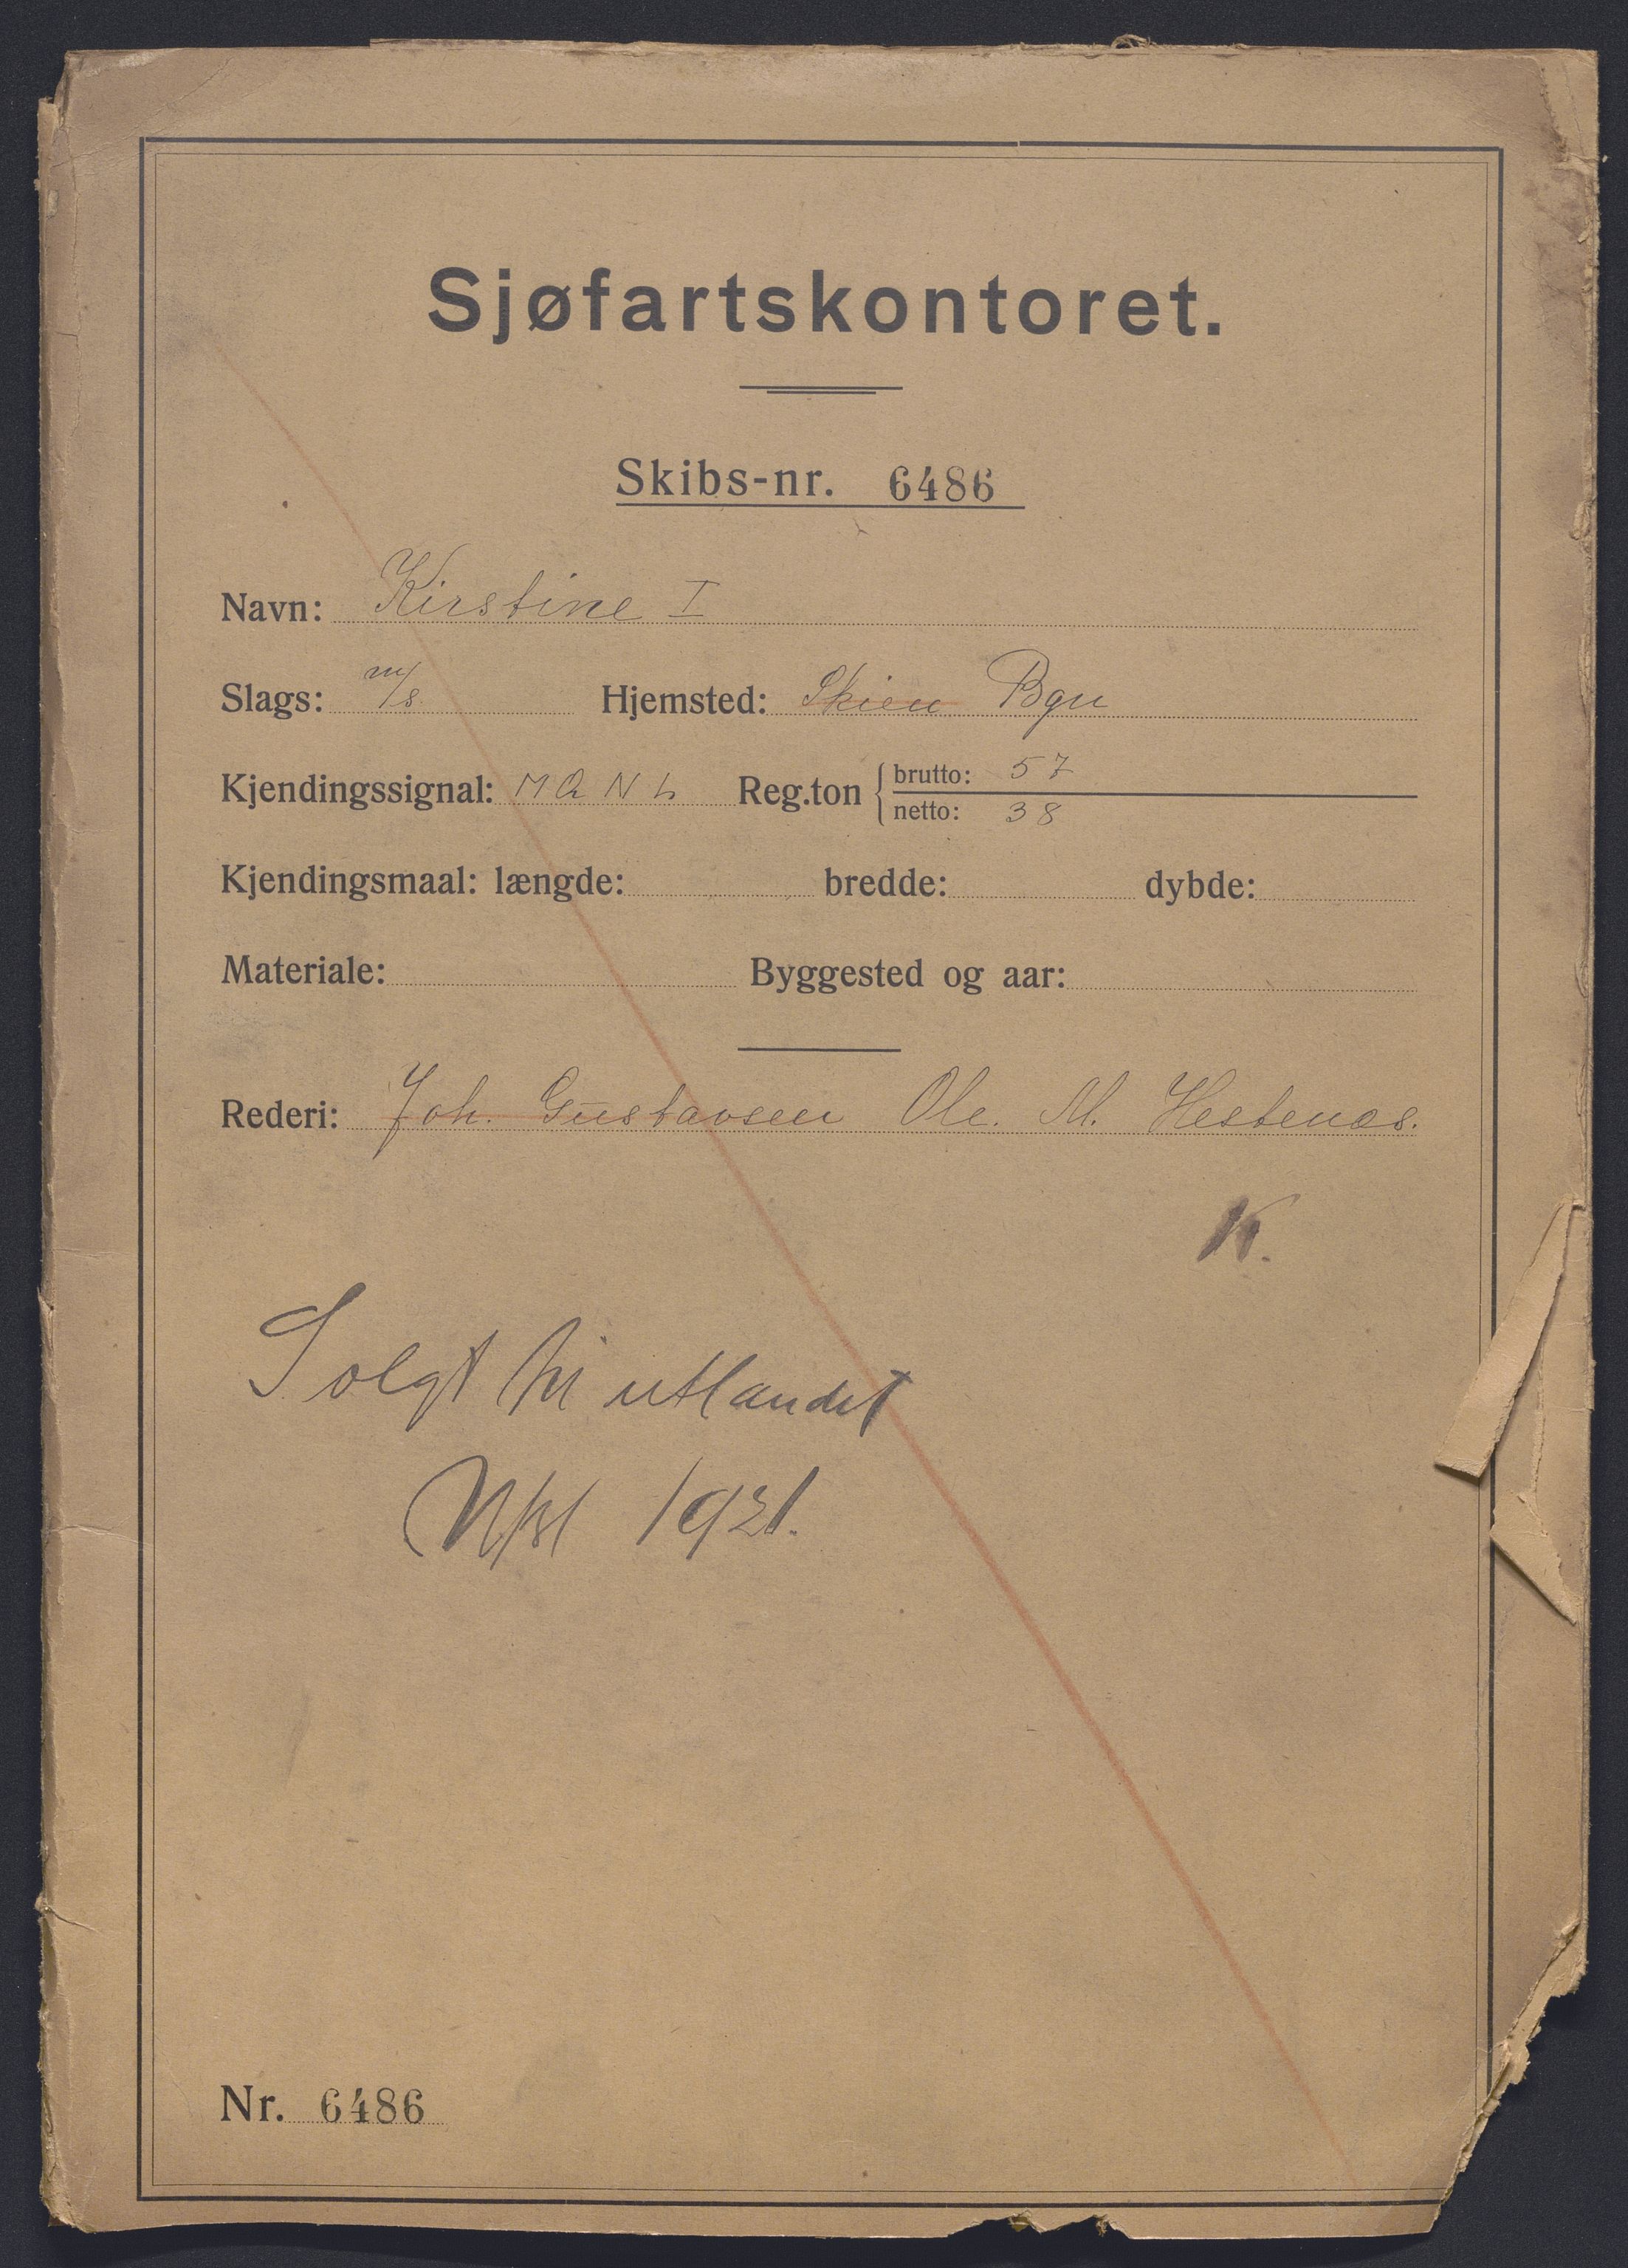 Sjøfartskontoret.
Skibs-nr. 6486
Navn: Kirstine I
Slags: m/s Hjemsted: Skien Bgn
Kjendingssignal: M Q N L Reg.ton brutto: 57
netto: 38
Kjendingsmaal: længde: bredde: dybde:
Materiale: Byggested og aar:
Rederi: Joh. Gustavsen Ole. M. Hestenæs.
K.
Solgt til utlandet
1921.
Nr. 6486